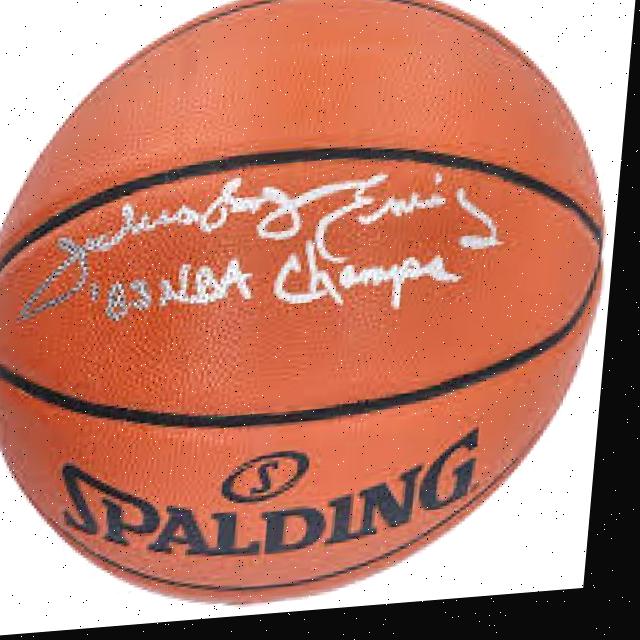 Julius Erving
'83 NBA Champs
S
SPALDING